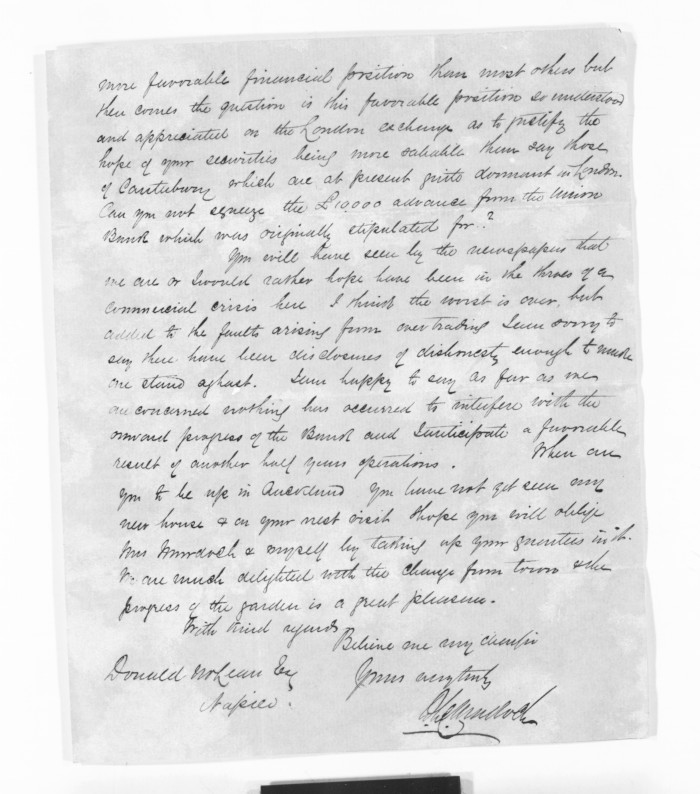 more favorable financial position than most others but
then comes the question is this favorable position so understood
and appreciated on the London exchange as to justify the
hope of your securities being more saleable than say those
of Canterbury which are at present quite dormant in London.
Can you not squeeze the £10,000 advance from the Union
Bank which was originally stipulated for?
You will have seen by the newspapers that
we are or I would rather hope have been in the throes of a
commercial crisis here I think the worst is over, but
added to the faults arising from overtrading I am sorry to
say there have been disclosures of dishonesty enough to make
one stand aghast. I am happy to say as far as we
are concerned nothing has occurred to interfere with the
onward progress of the Bank and I anticipate a favorable
result of another half years operations. When are
you to be up in Auckland You have not yet seen my
new house & on your next visit I hope you will oblige
Mrs Murdoch & myself by taking up your quarters in it.
We are much delighted with the change from town & the
progress of the garden is a great pleasure.
With kind regards
Believe me my dear Sir
Donald McLean Esq Yours very truly
Napier. Murdoch